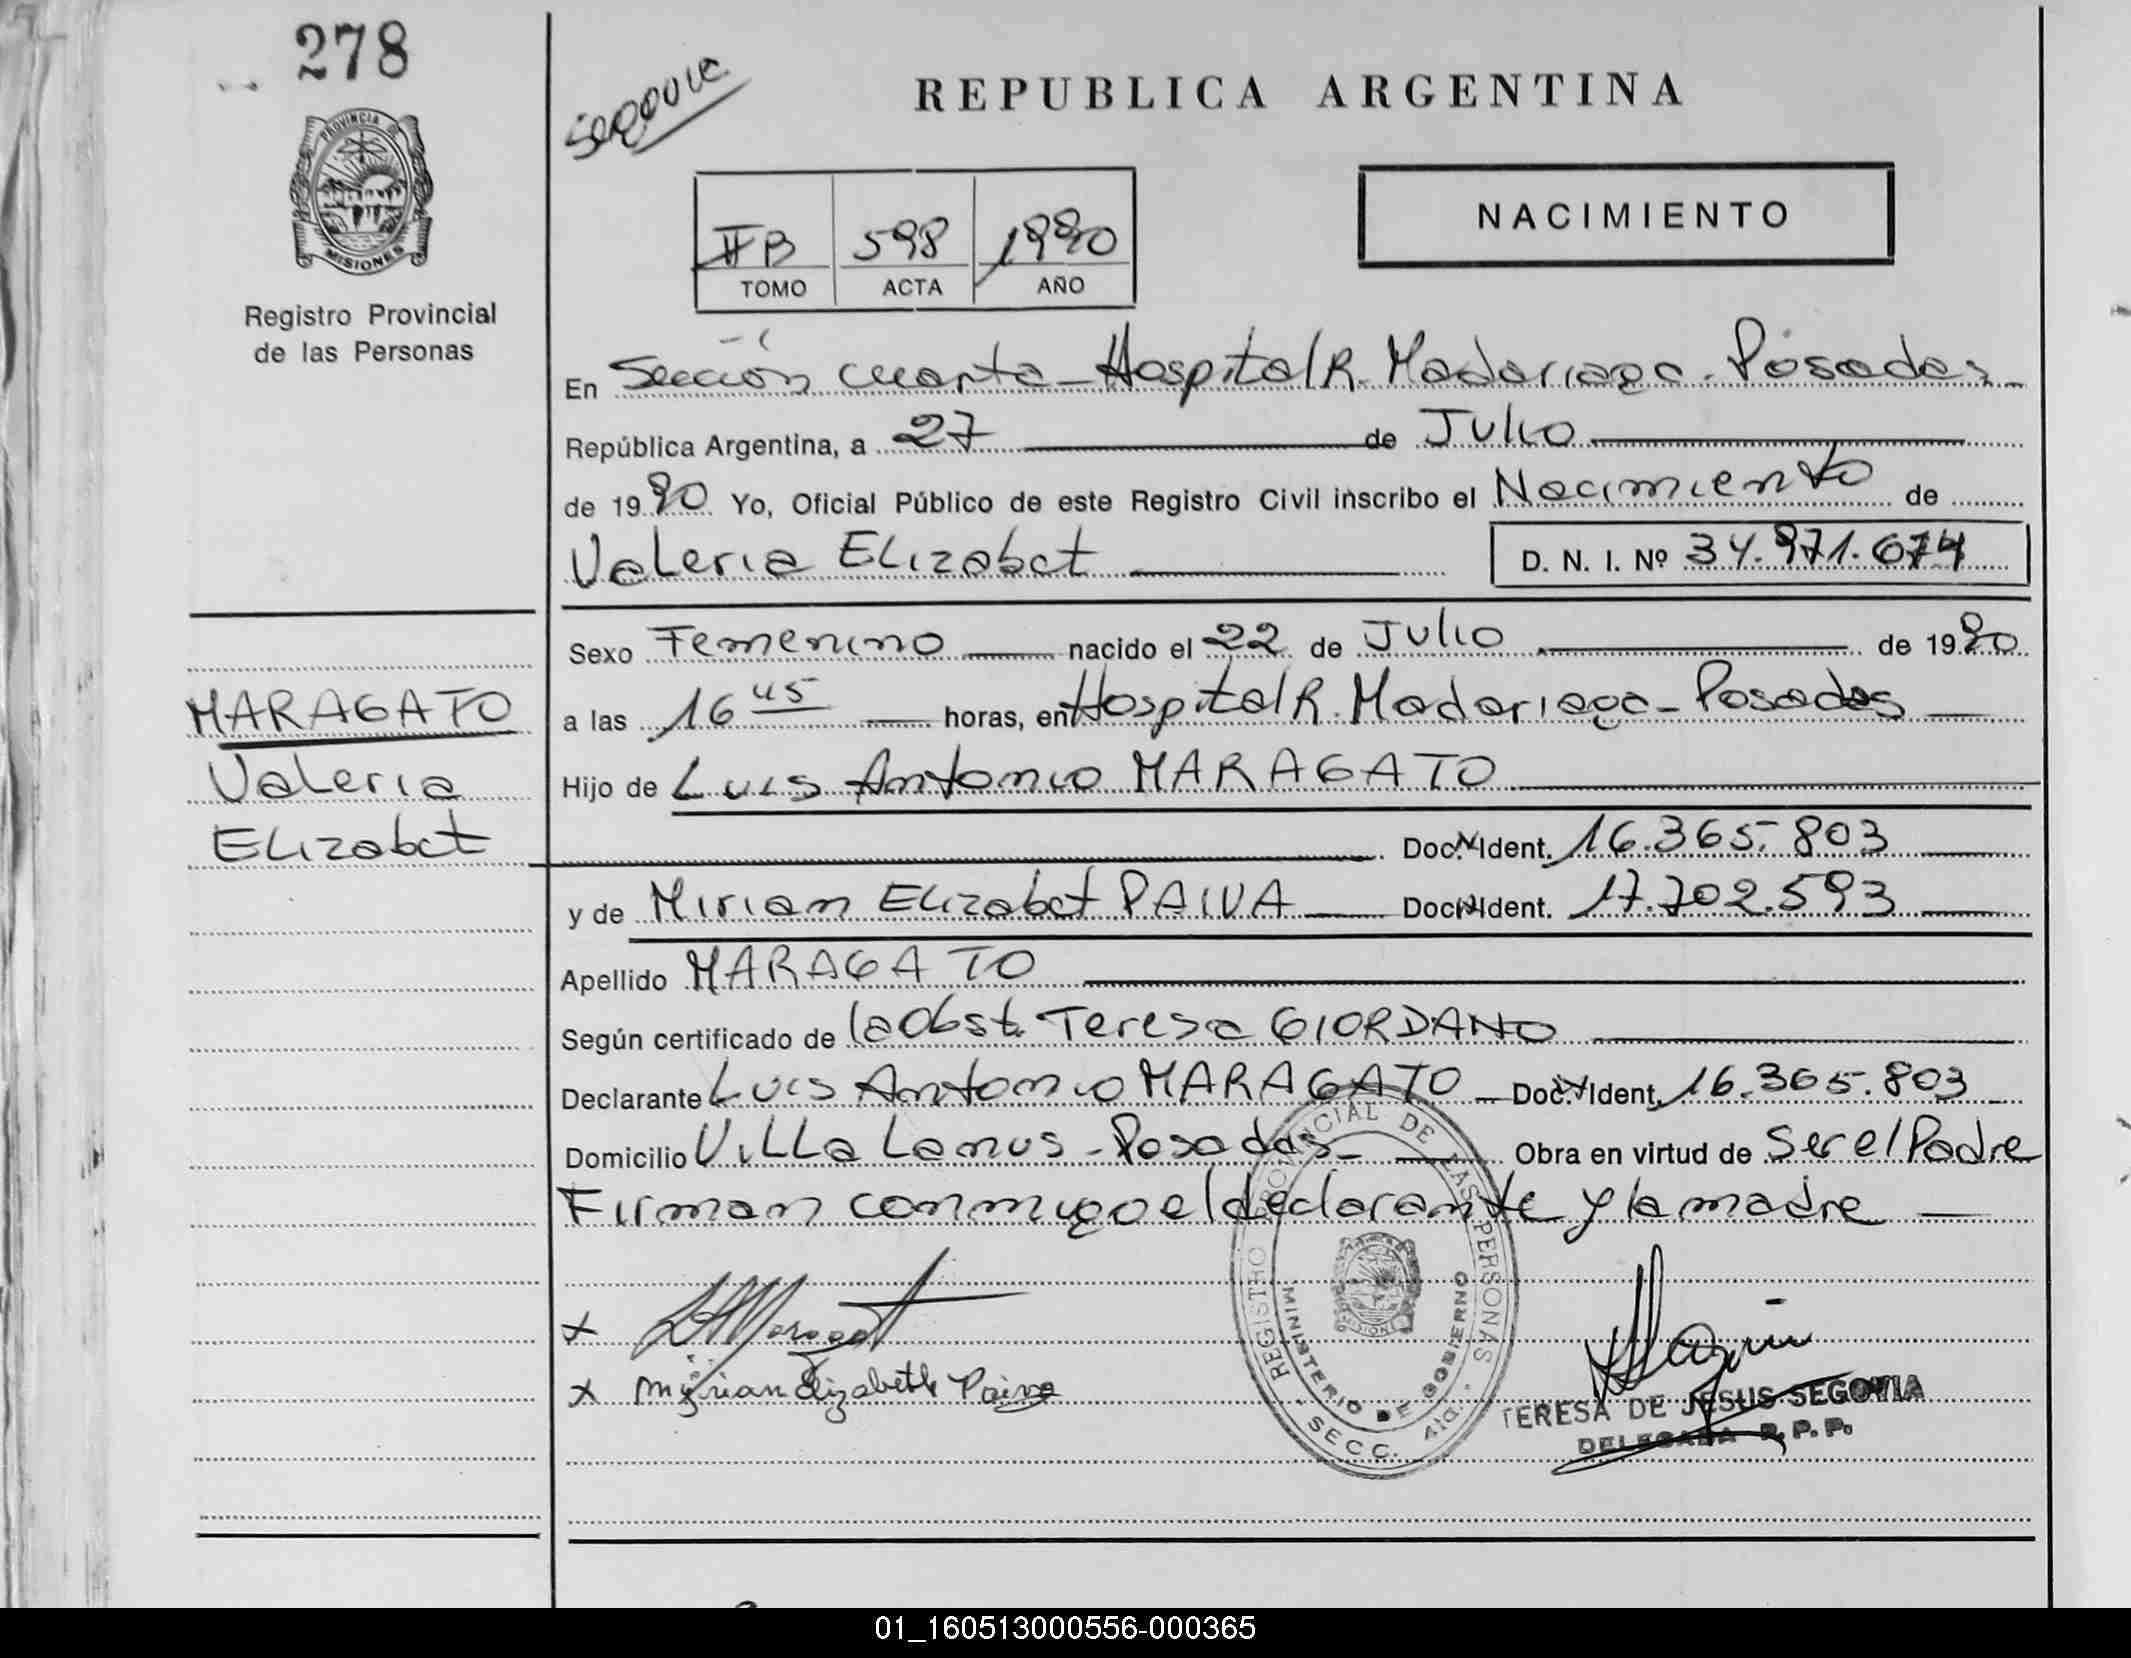 278
Segovia
REPUBLICA ARGENTINA
PROVINCIA DE
MISIONES
NACIMIENTO
IIB 598 1990
TOMO ACTA AÑO
Registro Provincial
de las Personas
En Sección cuarta - Hospital R. Madariaga - Posadas
República Argentina, a 27 de Julio
de 1990 Yo, Oficial Público de este Registro Civil inscribo el Nacimiento de
Valeria Elizabet D. N. I. Nº 34.971.674
Sexo Femenino nacido el 22 de Julio de 1990
MARAGATO
Valeria
Elizabet
a las 16 45 horas, en Hospital R. Madariaga - Posadas
Hijo de Luis Antonio MARAGATO
Doc. N Ident. 16.365.803
y de Miriam Elizabet PAIVA Doc. N Ident. 17.702.593
Apellido MARAGATO
Según certificado de la Obst. Teresa GIORDANO
Declarante Luis Antonio MARAGATO Doc. N Ident. 16.365.803
Domicilio Villa Lanus - Posadas Obra en virtud de Ser el Padre
Firman conmigo el declarante y la madre
x
x Myrian Elizabeth Paiva
REGISTRO PROVINCIAL DE LAS PERSONAS
MINISTERIO DE GOBIERNO
SECC. 4ta.
MISIONES
TERESA DE JESUS SEGOVIA
DELEGADA R. P. P.
01_160513000556-000365